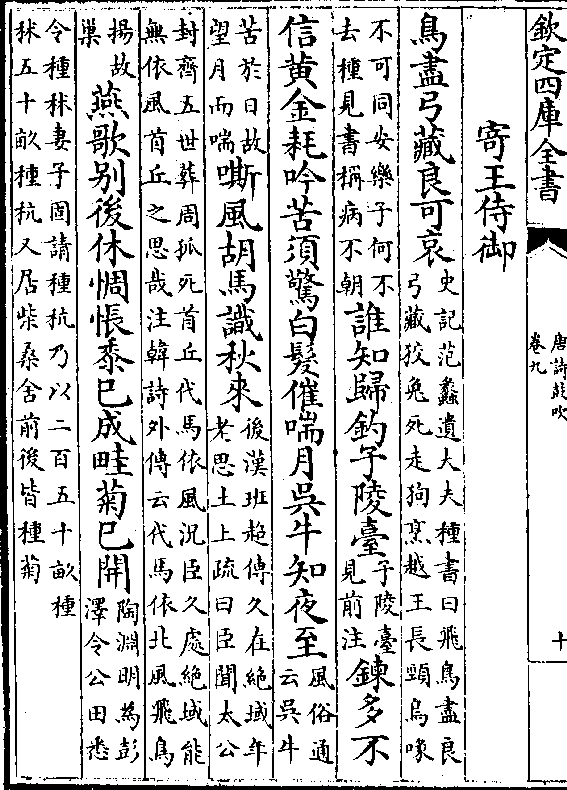 欽定四庫全書
唐詩鼓吹
卷九
十
寄王侍御
鳥盡弓藏良可哀
史記范蠡遺大夫種書曰飛鳥盡良
弓藏狡兔死走狗烹越王長頸烏喙
不可同女樂子何不
去種見書稱病不朝
誰知歸釣子陵臺
子陵臺
見前注
鍊多不
信黃金耗吟苦須驚白髮催喘月吳牛知夜至
風俗通
云吳牛
苦於日故
望月而喘
嘶風胡馬識秋來
後漢班超傳久在絕域年
老思土上疏曰臣聞太公
封齊五世葬周孤死首丘代馬依風況臣久處絕域能
無依風首丘之思哉注韓詩外傳云代馬依北風飛鳥
揚故
巢
燕歌别後休惆悵黍已成畦菊已開
陶淵明為彭
澤令公田悉
令種秫妻子固請種秔乃以二百五十畝種
秫五十畝種秔又居柴桑舍前後皆種菊